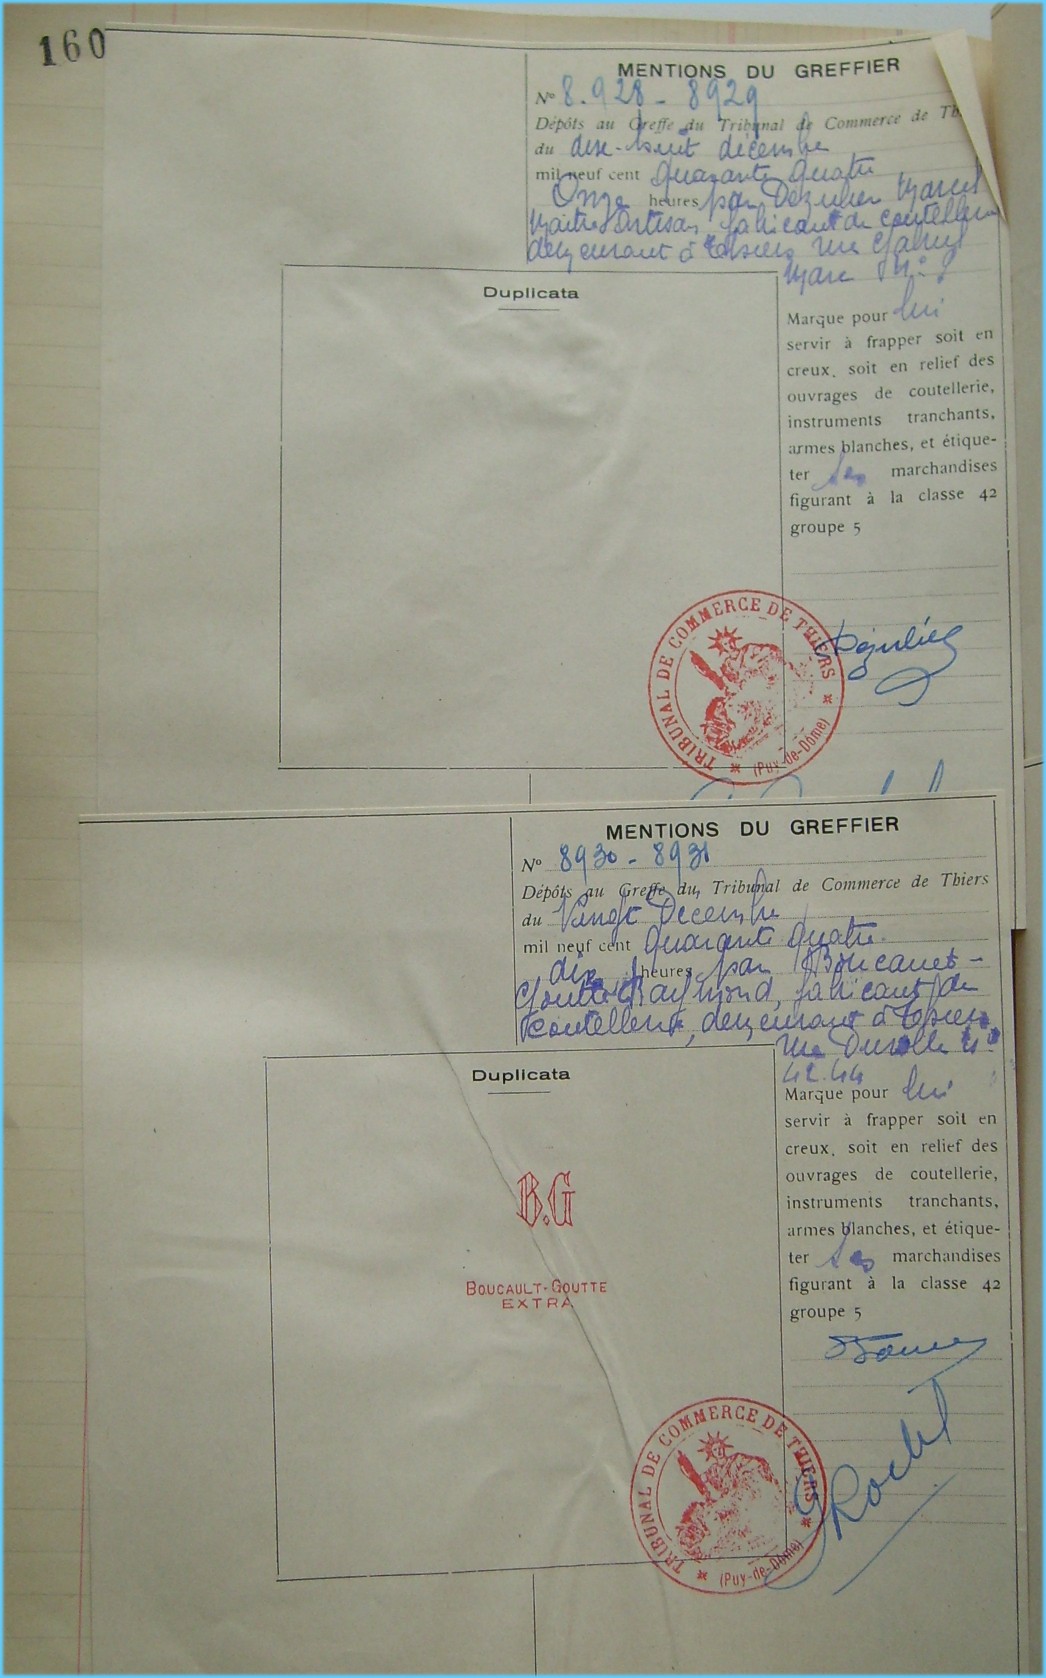 160
MENTIONS DU GREFFIER
No 8.928 - 8929
Dépôts au Greffe du Tribunal de Commerce de
du dix-huit décembre
mil neuf cent quarante quatre
Onze heures par Marcel
Maître Artisan, fabricant de coutellerie
demeurant à Thiers, rue
Marc No
Duplicata
Marque pour lui
servir à frapper soit en
creux, soit en relief des
ouvrages de coutellerie,
instruments tranchants,
armes blanches, et étique-
ter ses marchandises
figurant à la classe 42
groupe 5
TRIBUNAL DE COMMERCE DE THIERS
(Puy-de-Dôme)
MENTIONS DU GREFFIER
No 8930 - 8931
Dépôts au Greffe du Tribunal de Commerce de Thiers
du Vingt Décembre
mil neuf cent quarante quatre.
dix heures par
Goutte Raymond, fabricant de
coutellerie, demeurant à Thiers,
rue Durolle No
42.44
Duplicata
Marque pour lui
servir à frapper soit en
creux, soit en relief des
ouvrages de coutellerie,
instruments tranchants,
armes blanches, et étique-
ter ses marchandises
figurant à la classe 42
groupe 5
B.G
BOUCAULT-GOUTTE
EXTRA
TRIBUNAL DE COMMERCE DE THIERS
(PUY-DE-DÔME)